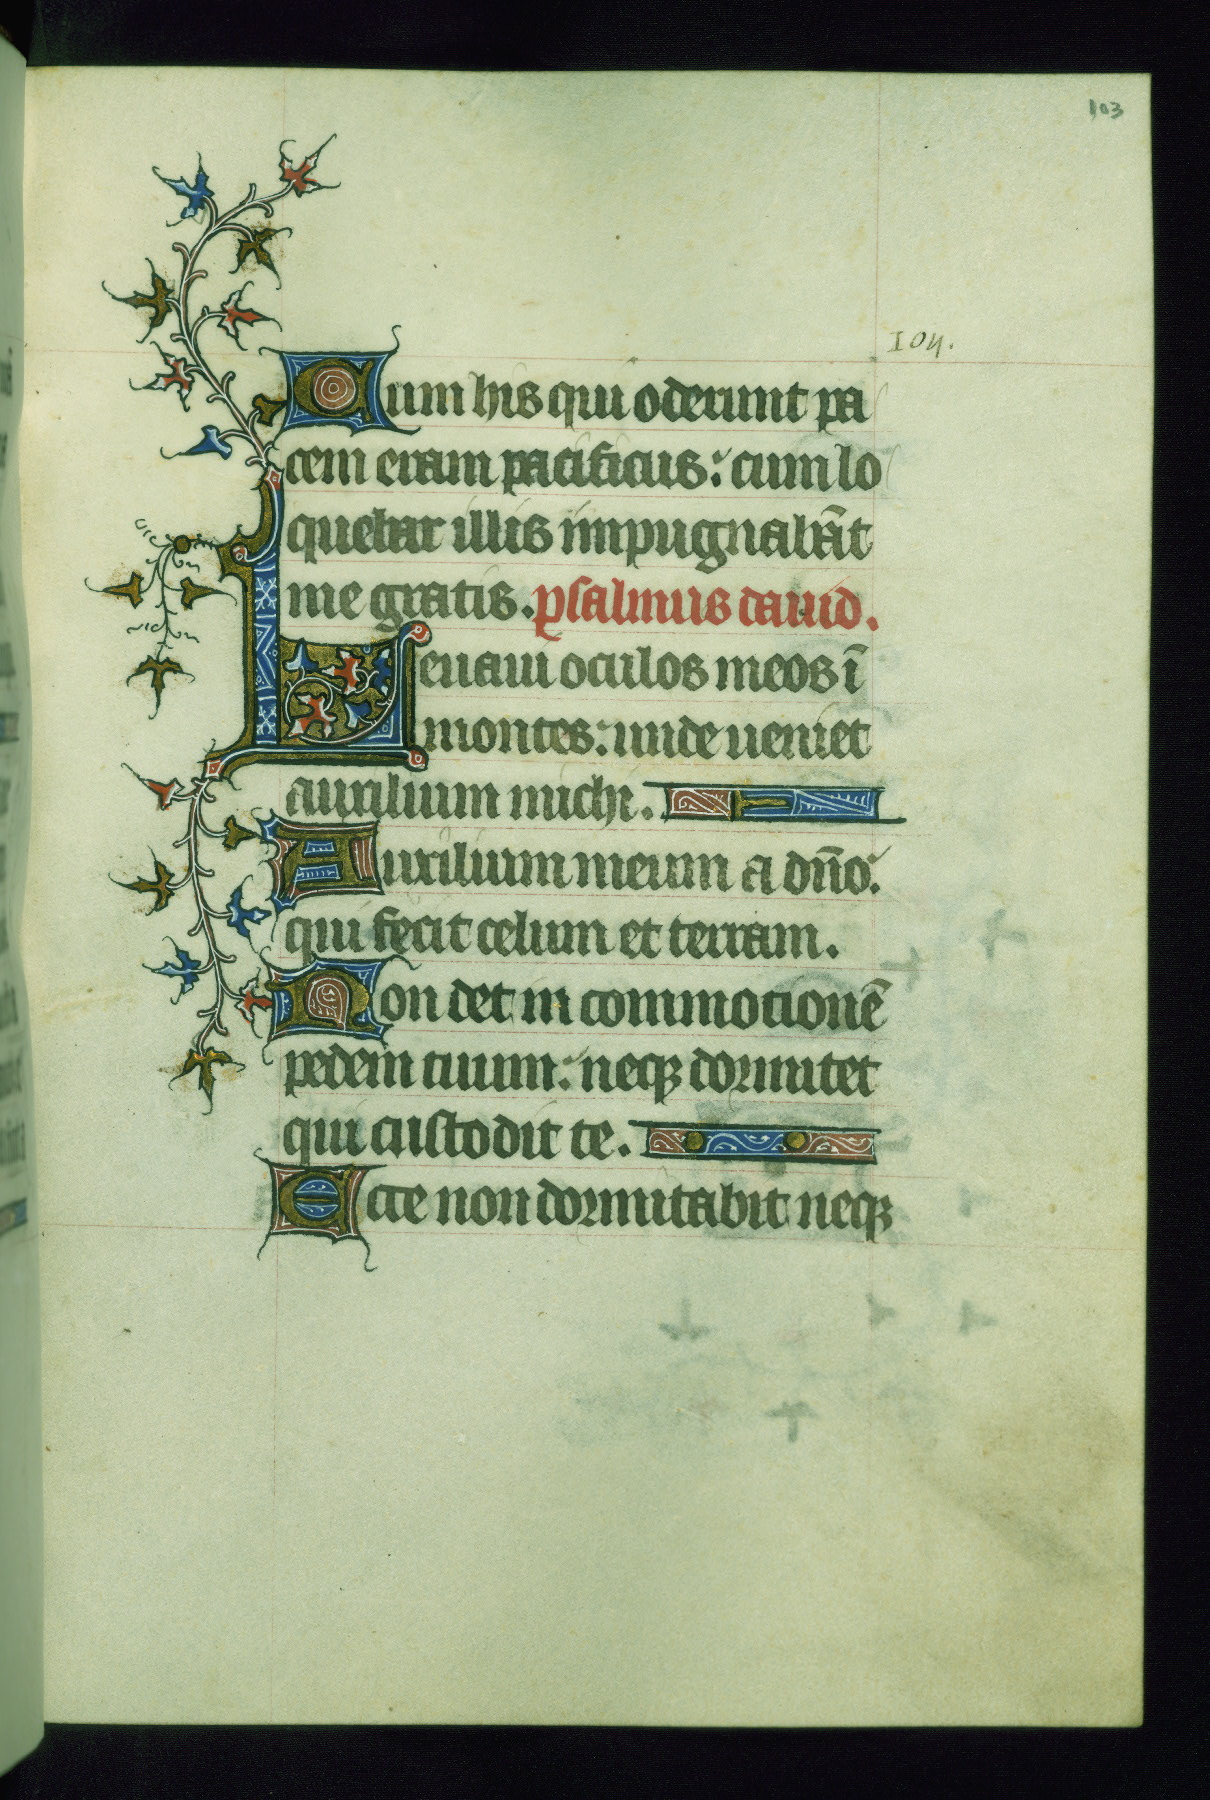 103
104.
Cum his qui oderunt pa
cem eram pacificus: cum lo
quebar illis impugnabāt
me gratis. psalmus dauid.
Leuaui oculos meos ī
montes: unde ueniet
auxilium michi.
Auxilium meum a dn̄o:
qui fecit celum et terram.
Non det in commotionē
pedem tuum: neqꝫ dormitet
qui custodit te.
Ecce non dormitabit neqꝫ